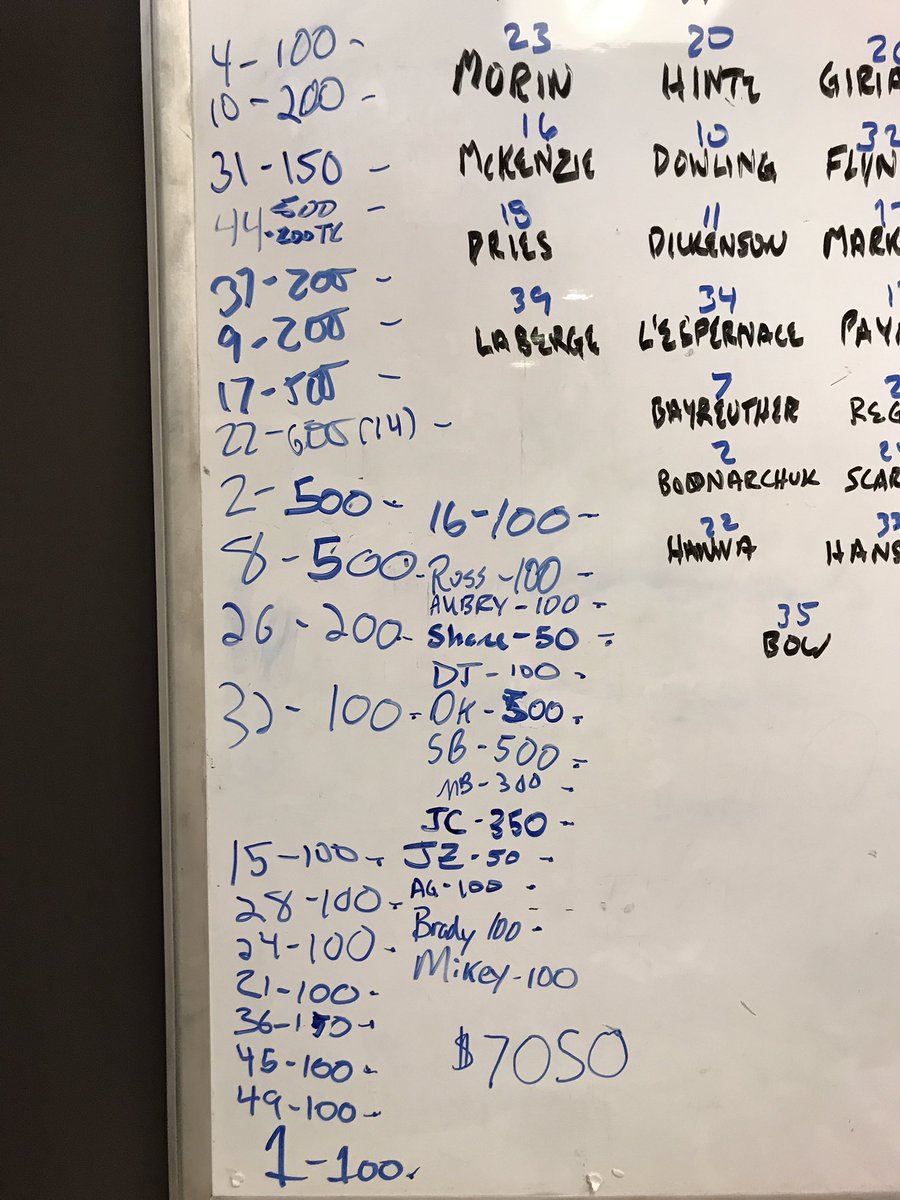 4-100-
10-200-
31-150-
44-500-
-200TC
37-200-
9-200-
17-500-
22-600(14)-
2-500-
8-500-
26-200-
32-100-
15-100-
28-100-
24-100-
21-100-
36-150-
45-100-
49-100-
1-100-
16-100-
Russ-100-
AUBRY-100-
Shane-50-
DJ-100-
DK-500-
SB-500-
MB-300-
JC-350-
JZ-50-
AG-100-
Brady 100-
Mikey-100
$7050
23 20
MORIN HINTZ GIRIA
16 10 32
MCKENZIE DOWLING FLYN
19 11 17
DRIES DILKENSON MARK
39 34
LABERGE L'ESPERNACE PAY
7
BAYREUTHER REG
2
BODNARCHUK SCAR
22
HANNA HANS
35
BOW